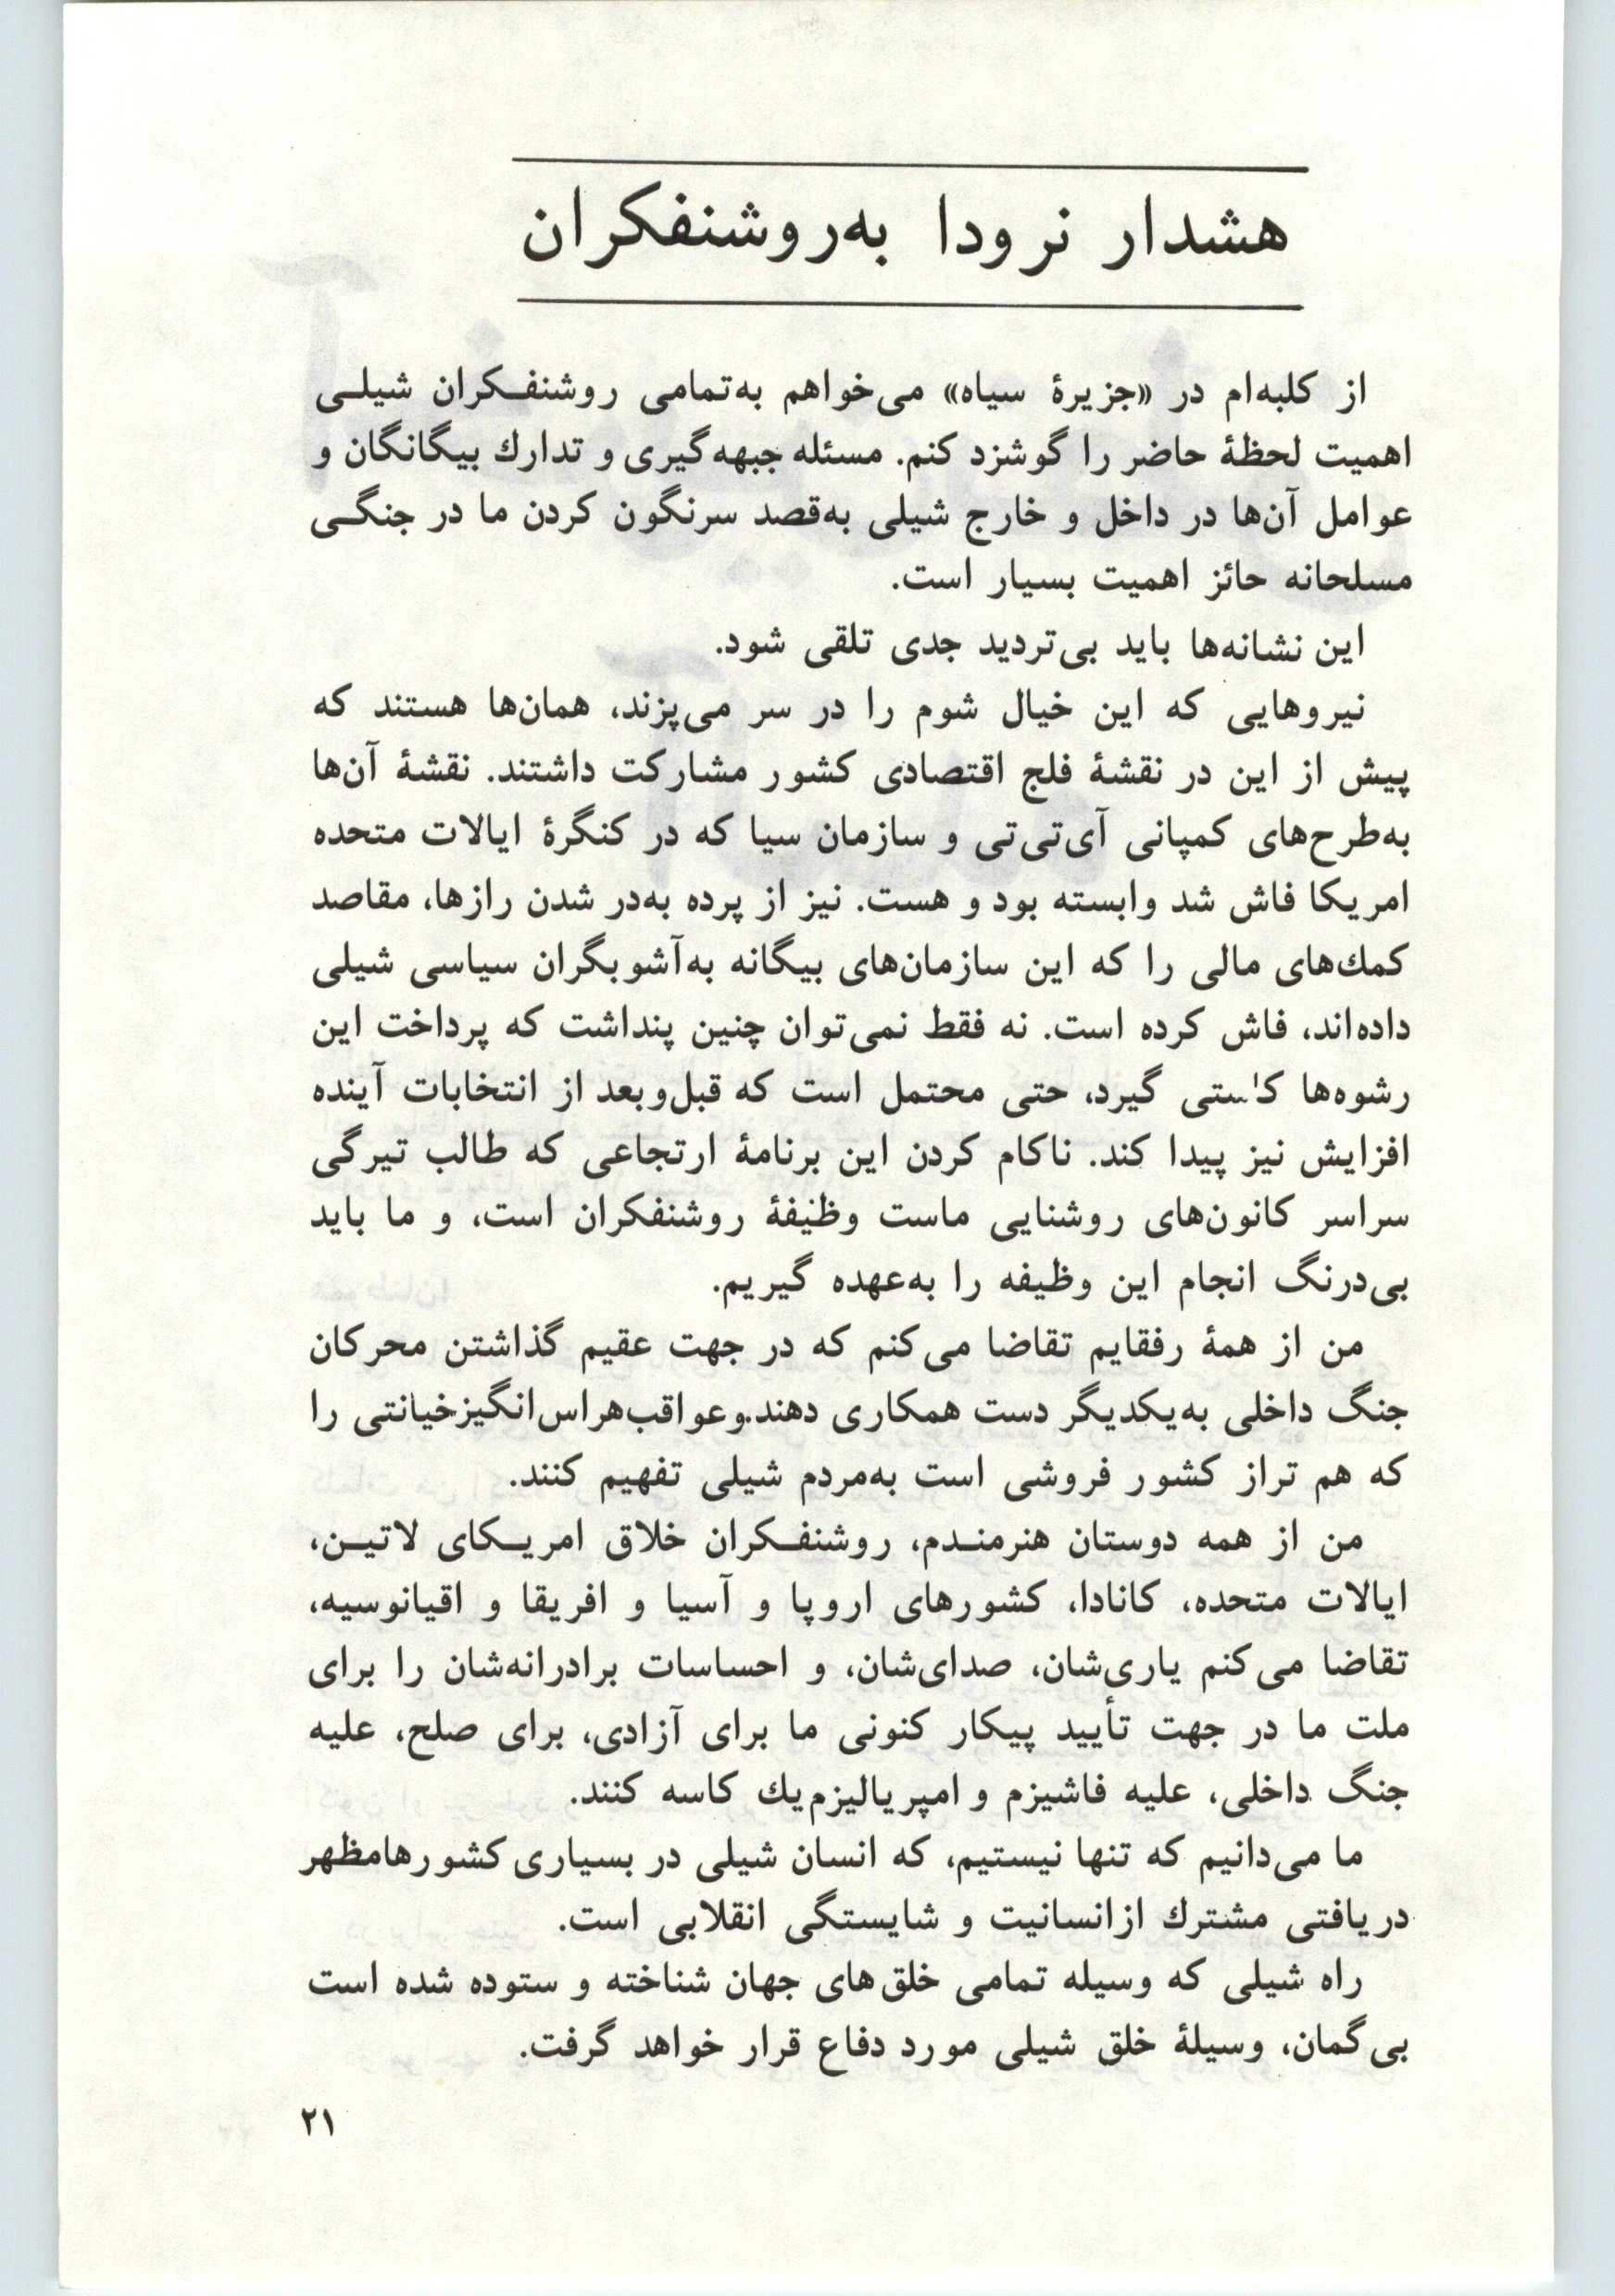 هشدار نرودا به‌روشنفکران
از کلبه‌ام در «جزیرهٔ سیاه» می‌خواهم به‌تمامی روشنفـکران شیلـی
اهمیت لحظهٔ حاضر را گوشزد کنم. مسئله جبهه‌گیری و تدارك بیگانگان و
عوامل آن‌ها در داخل و خارج شیلی به‌قصد سرنگون کردن ما در جنگـی
مسلحانه حائز اهمیت بسیار است.
این نشانه‌ها باید بی‌تردید جدی تلقی شود.
نیروهایی که این خیال شوم را در سر می‌پزند، همان‌ها هستند که
پیش از این در نقشهٔ فلج اقتصادی کشور مشارکت داشتند. نقشهٔ آن‌ها
به‌طرح‌های کمپانی آی‌تی‌تی و سازمان سیا که در کنگرهٔ ایالات متحده
امریکا فاش شد وابسته بود و هست. نیز از پرده به‌در شدن رازها، مقاصد
کمك‌های مالی را که این سازمان‌های بیگانه به‌آشوبگران سیاسی شیلی
داده‌اند، فاش کرده است. نه فقط نمی‌توان چنین پنداشت که پرداخت این
رشوه‌ها کاستی گیرد، حتی محتمل است که قبل‌و‌بعد از انتخابات آینده
افزایش نیز پیدا کند. ناکام کردن این برنامهٔ ارتجاعی که طالب تیرگی
سراسر کانون‌های روشنایی ماست وظیفهٔ روشنفکران است، و ما باید
بی‌درنگ انجام این وظیفه را به‌عهده گیریم.
من از همهٔ رفقایم تقاضا می‌کنم که در جهت عقیم گذاشتن محرکان
جنگ داخلی به‌یکدیگر دست همکاری دهند.وعواقب‌هراس‌انگیزخیانتی را
که هم تراز کشور فروشی است به‌مردم شیلی تفهیم کنند.
من از همه دوستان هنرمنـدم، روشنفـکران خلاق امریـکای لاتیـن،
ایالات متحده، کانادا، کشورهای اروپا و آسیا و افریقا و اقیانوسیه،
تقاضا می‌کنم یاری‌شان، صدای‌شان، و احساسات برادرانه‌شان را برای
ملت ما در جهت تأیید پیکار کنونی ما برای آزادی، برای صلح، علیه
جنگ داخلی، علیه فاشیزم و امپریالیزم‌یك کاسه کنند.
ما می‌دانیم که تنها نیستیم، که انسان شیلی در بسیاری کشورهامظهر
دریافتی مشترك ازانسانیت و شایستگی انقلابی است.
راه شیلی که وسیله تمامی خلق‌های جهان شناخته و ستوده شده است
بی‌گمان، وسیلهٔ خلق شیلی مورد دفاع قرار خواهد گرفت.
۲۱